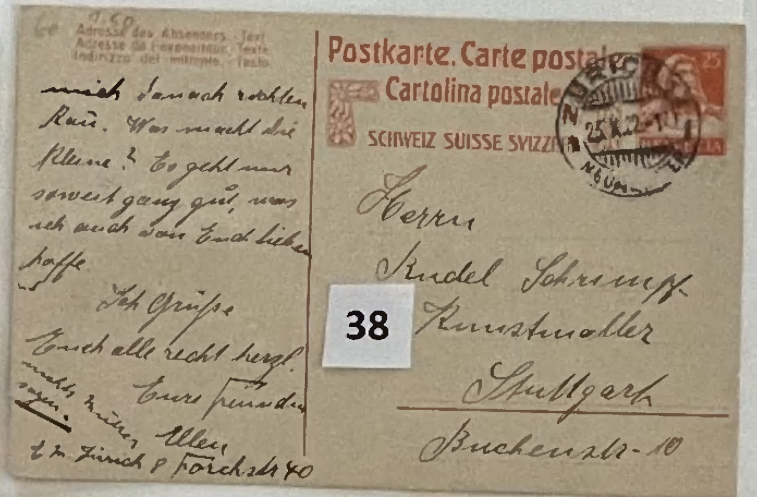 9.50
Adresse des Absenders - Text
Adresse de l'expéditeur - Texte
Indirizzo del mittente - Testo
mich danach richten
kann. Was macht die
Kleine? Es geht uns
soweit ganz gut, was
ich auch von Euch Lieben
hoffe.
Ich Grüße
Euch alle recht herzl.
Eure Freundin
Ellen
nichts
sagen.
Zürich 8 Forchstr 40
Postkarte. Carte postale
Cartolina postale
SCHWEIZ SUISSE SVIZZ
25
ZÜRICH
25.X.22
Herrn
Rudel Schrimpf
Kunstmaller
Stuttgart
Buchenstr. 10
38